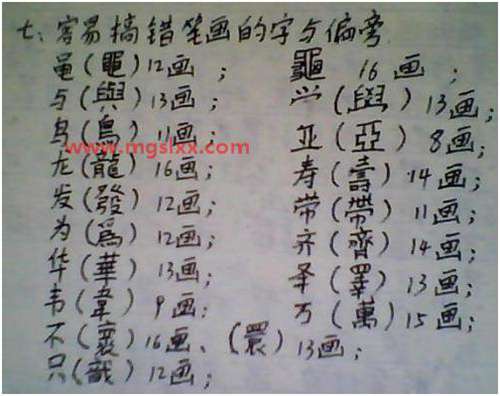 七、容易搞错笔画的字与偏旁
黾(黽)12画; 龜 16画;
与(與)13画; ( )13画;
鸟(鳥)11画; 亚(亞)8画;
www.mgslxx.com
龙(龍)16画; 寿(壽)14画;
发(發)12画; 带(帶)11画;
为(爲)12画; 齐(齊)14画;
华(華)13画; (睪)13画;
韦(韋)9画; 万(萬)15画;
不(褱)16画、(睘)13画;
只(戠)12画;